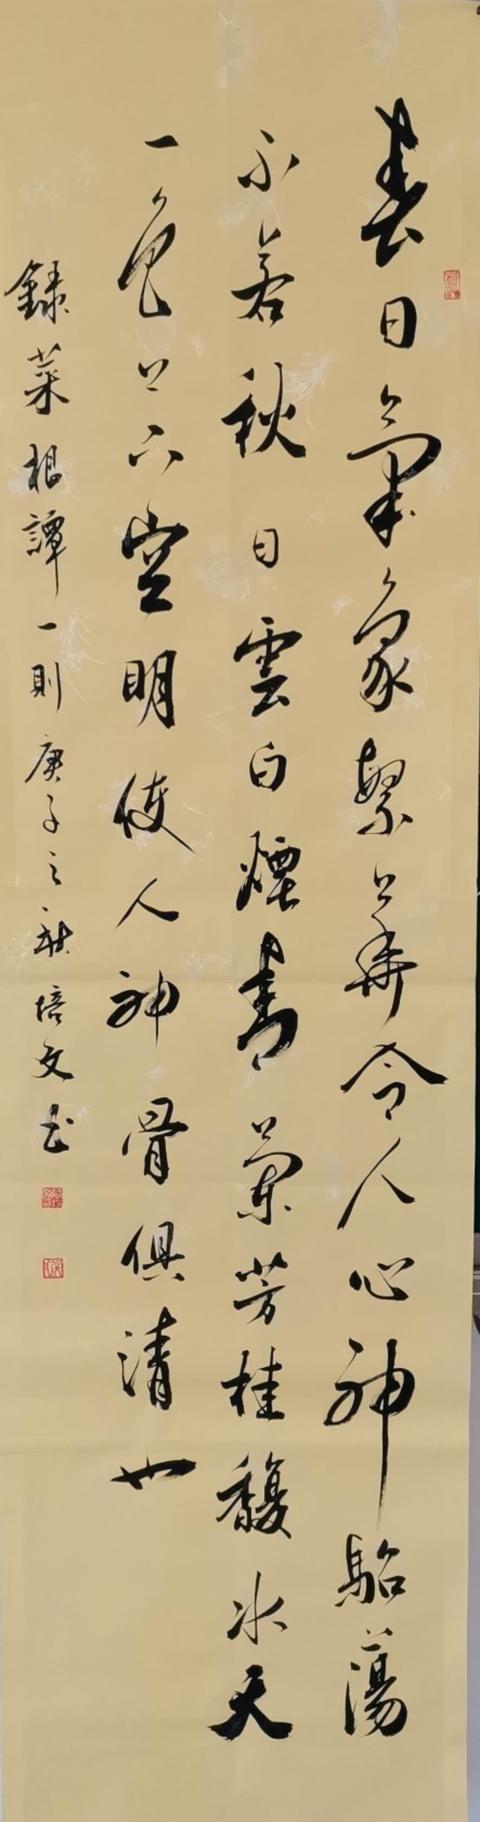 春日氣象繁華令人心神駘蕩
不若秋日雲白煙青蘭芳桂馥水天
一色上下空明使人神骨俱清也
錄菜根譚一則庚子之秋培文书